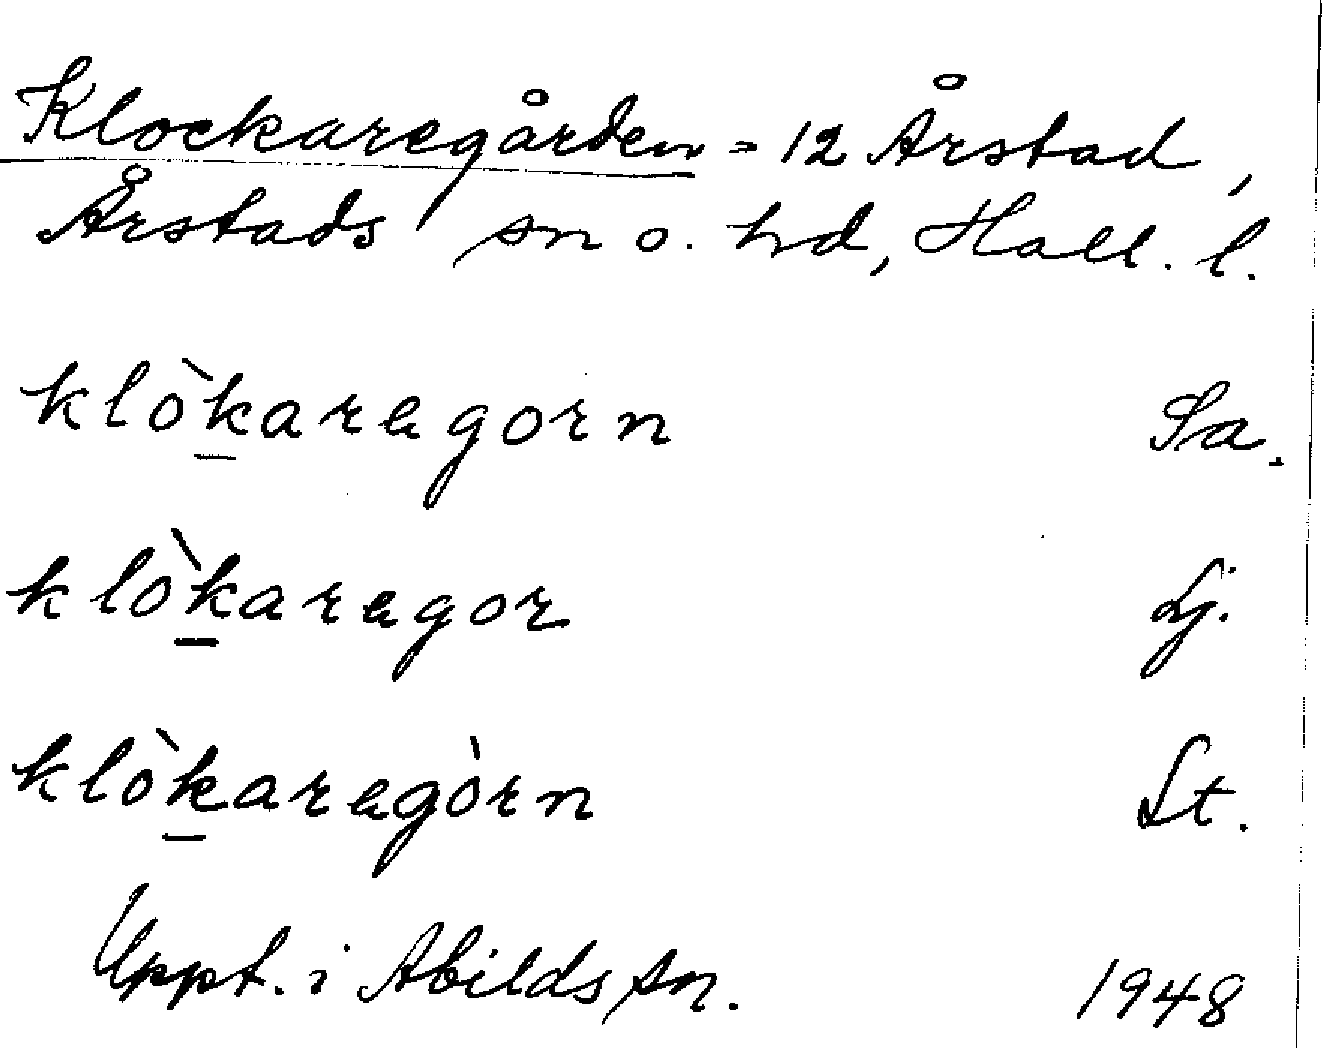 Klockaregården = 12 Årstad,
Årstads sn o. hd, Hall. l.
klòkaregorn Sa.
klòkaregor Lj.
klòkaregòrn St.
Uppt. i Abilds sn. 1948